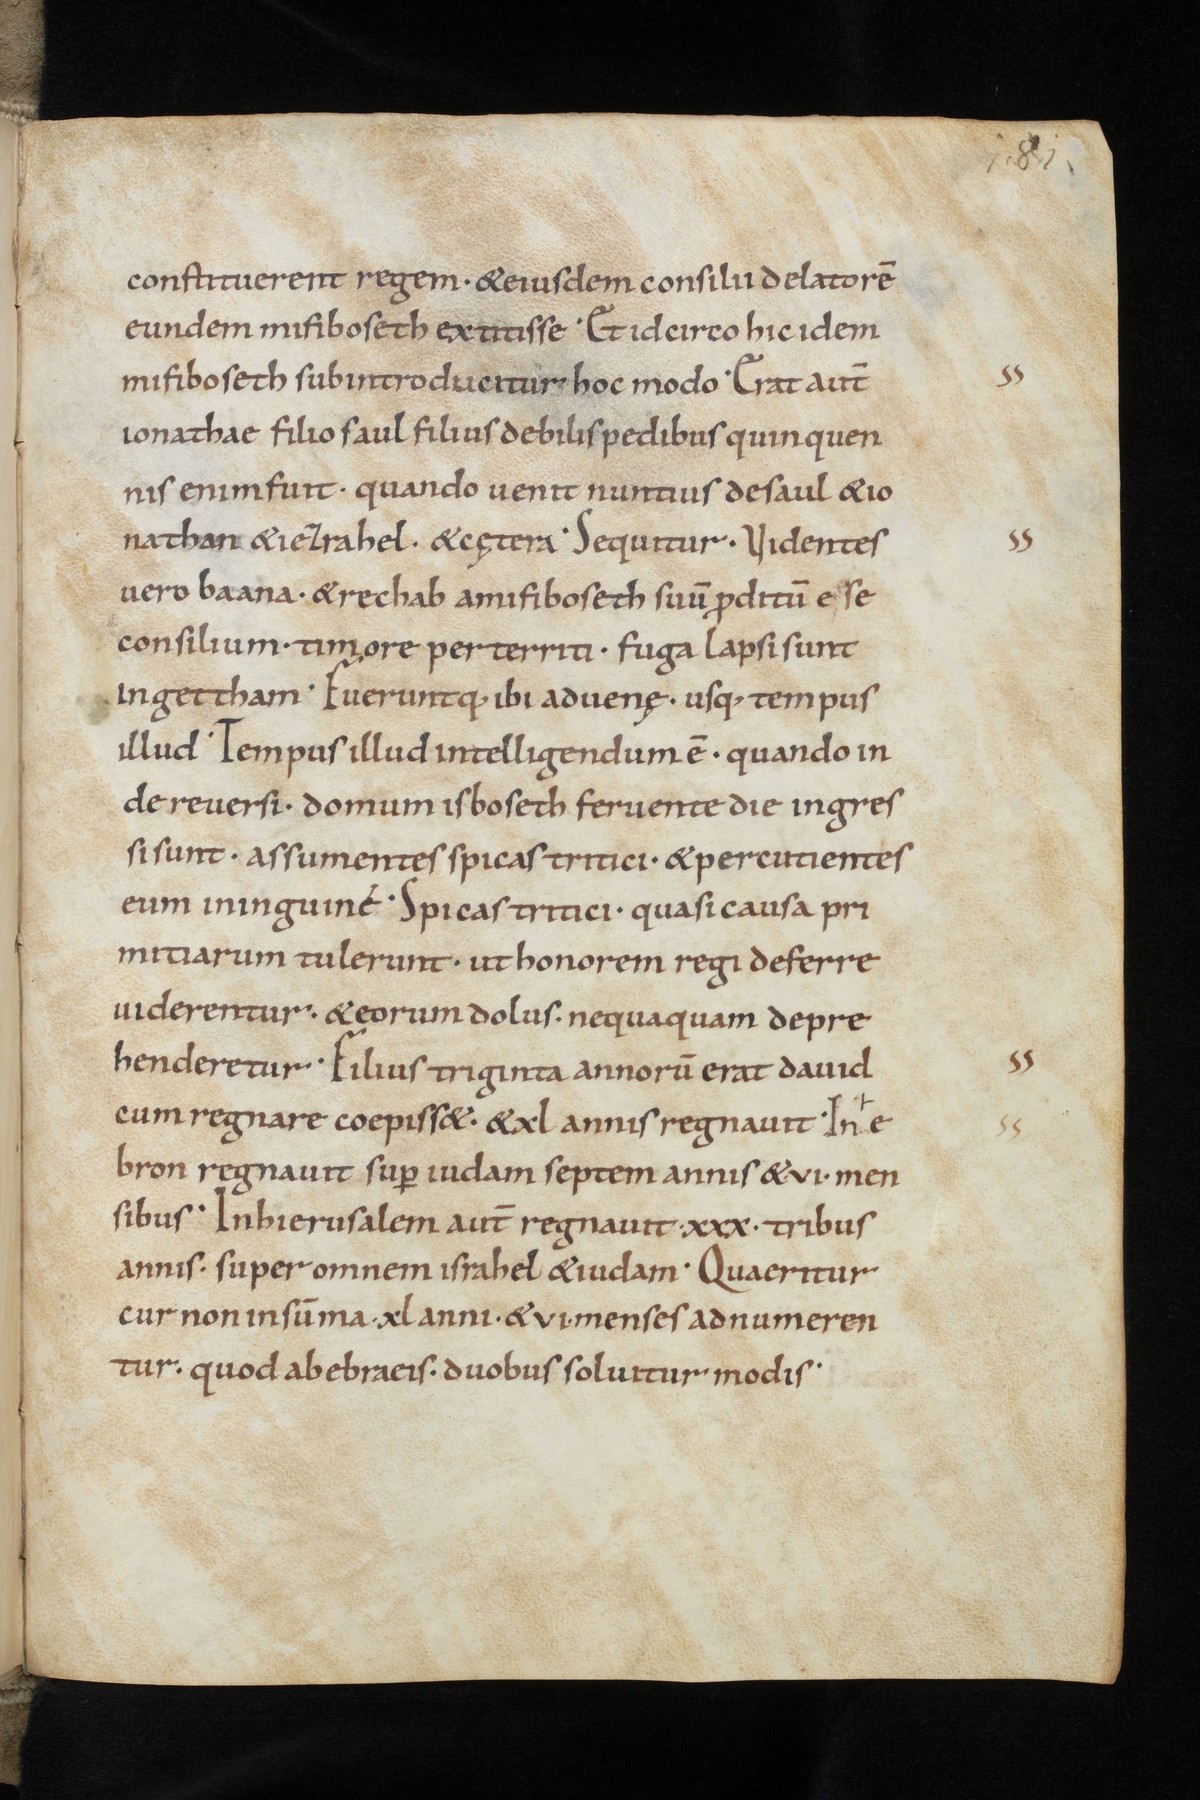 181
constituerent regem · & eiusdem consilii delatorē
eundem mifiboseth extitisse · Et idcirco hic idem
mifiboseth subintroducitur hoc modo · Erat aut̄ ss
ionathae filio saul filius debilis pedibus quinquen
nis enim fuit · quando uenit nuntius de saul & io
nathan & iezrahel · & cętera · Sequitur · Videntes ss
uero baana · & rechab a mifiboseth suū ꝓditū esse
consilium · timore perterriti · fuga lapsi sunt
in gettham · Fueruntq; ibi aduenę · usq; tempus
illud · Tempus illud intelligendum ē · quando in
de reuersi · domum isboseth feruente die ingres
si sunt · assumentes spicas tritici · & percutientes
eum in inguine · Spicas tritici · quasi causa pri
mitiarum tulerunt · ut honorem regi deferre
uiderentur · & eorum dolus · nequaquam depre
henderetur · Filius triginta annorū erat dauid ss
cum regnare coepiss& · & xl annis regnauit · In ⱶe ss
bron regnauit suꝑ iudam septem annis & vi · men
sibus · In hierusalem aut̄ regnauit · xxx · tribus
annis · super omnem israhel & iudam · Quaeritur
cur non in sūma · xl anni · & vi · menses adnumeren
tur · quod ab ebraeis · duobus soluitur modis ·